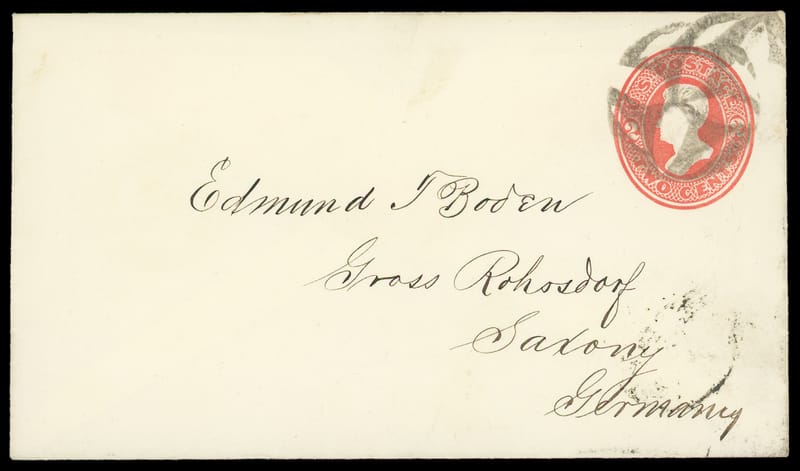 U.S. POSTAGE
2 2
TWO CENTS
Edmund T Boden
Gross Rohosdorf
Saxony
Germany